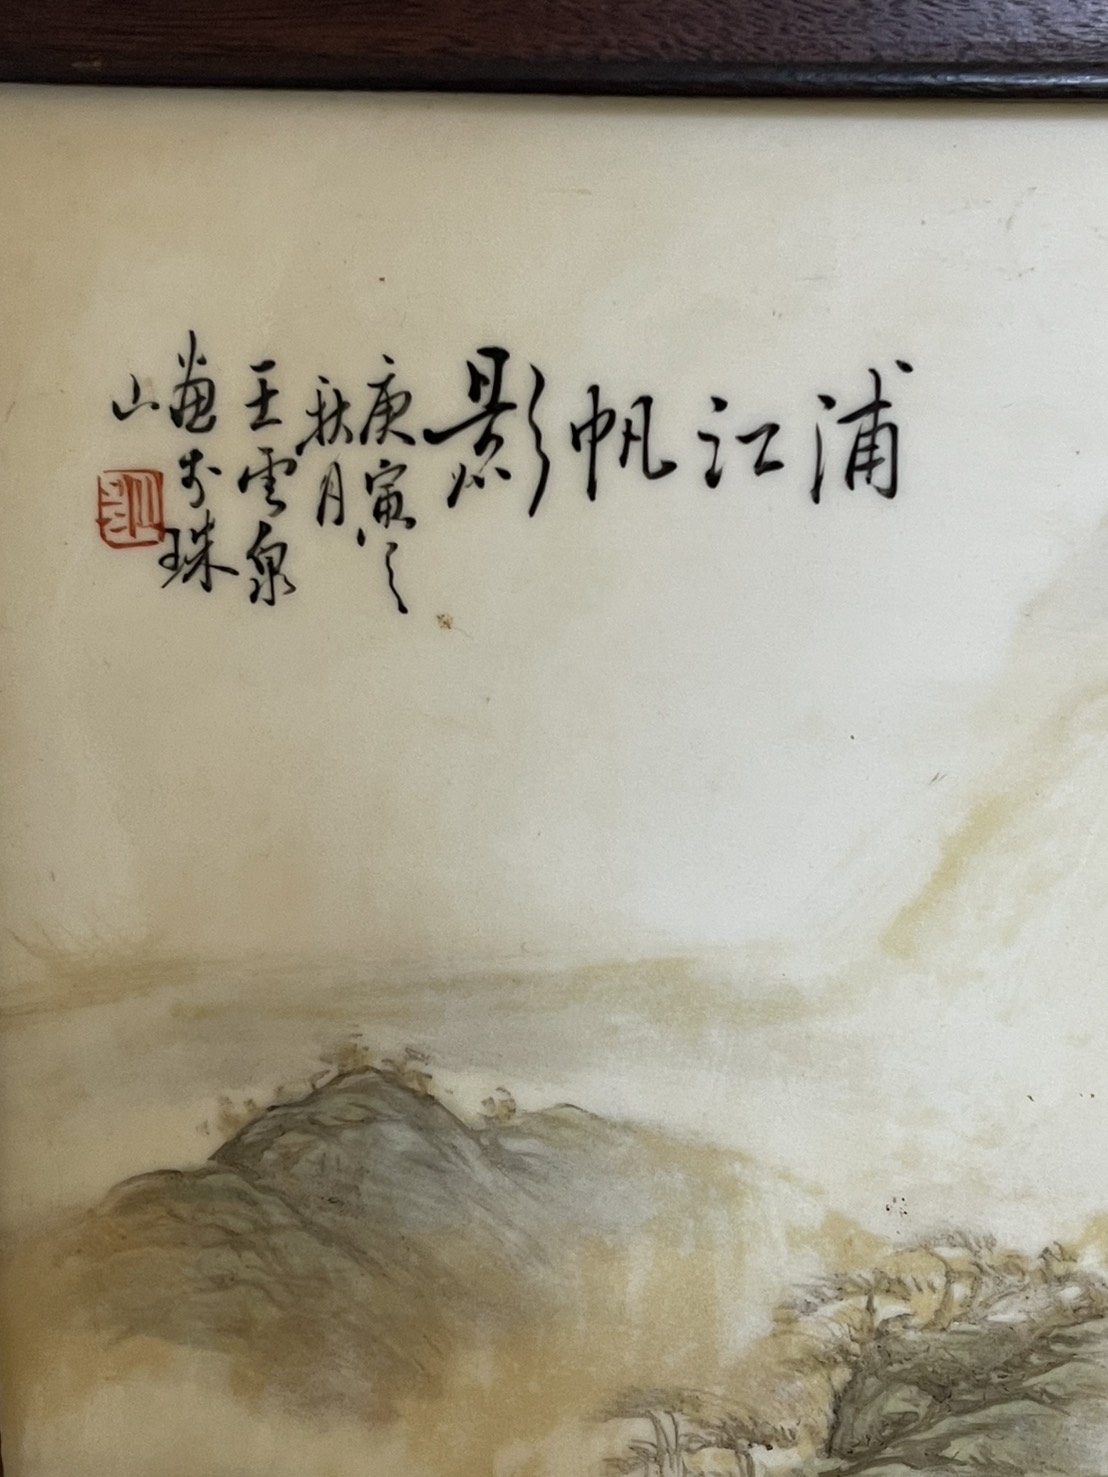 浦江帆影
庚寅之
秋月
王雲泉
畫於珠
山